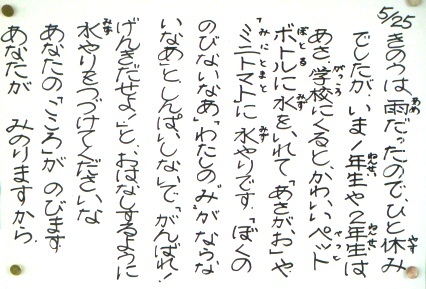 5/25
きのうは、雨だったので、ひと休み
でしたが、いま1年生や2年生は
あさ学校にくると、かわいいペット
ボトルに水をいれて「あさがお」や
「ミニトマト」に水やりです。「ぼくの
のびないなあ」「わたしの“み”がならな
いなあ」としんぱいしないで、「がんばれ!
げんきだせよ!」と、おはなしするように
水やりをつづけてくださいな
あなたの「こころ」が のびます
あなたが みのりますから.